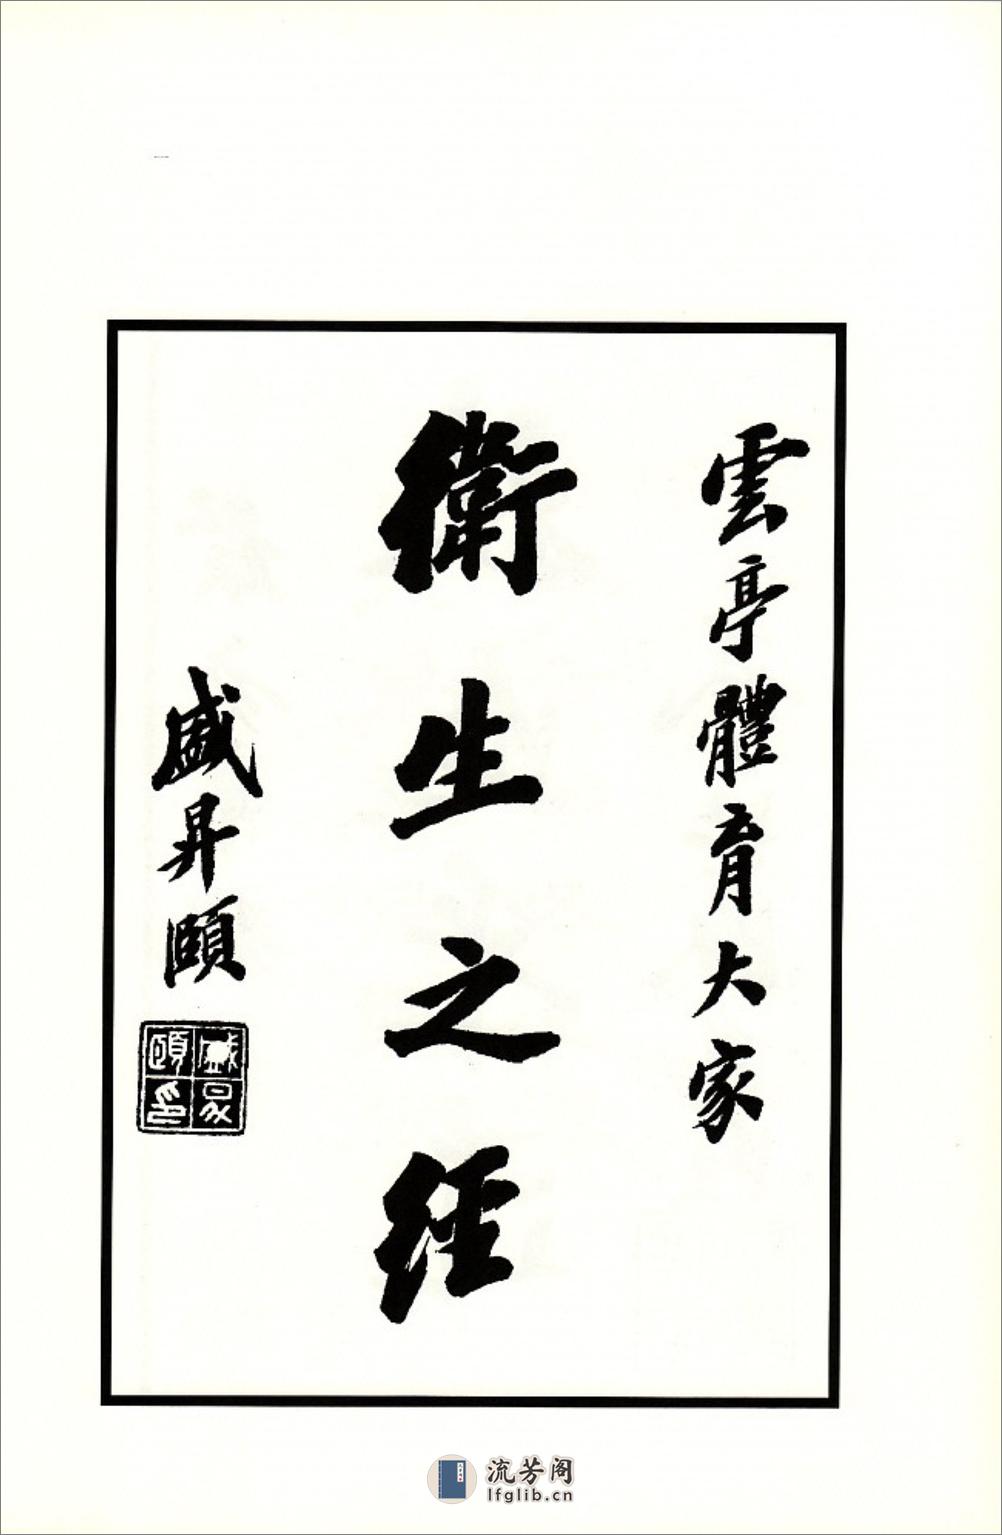 雲亭體育大家
衛生之經
盛昇頤
盛昇頤印
流芳阁
lfglib.cn